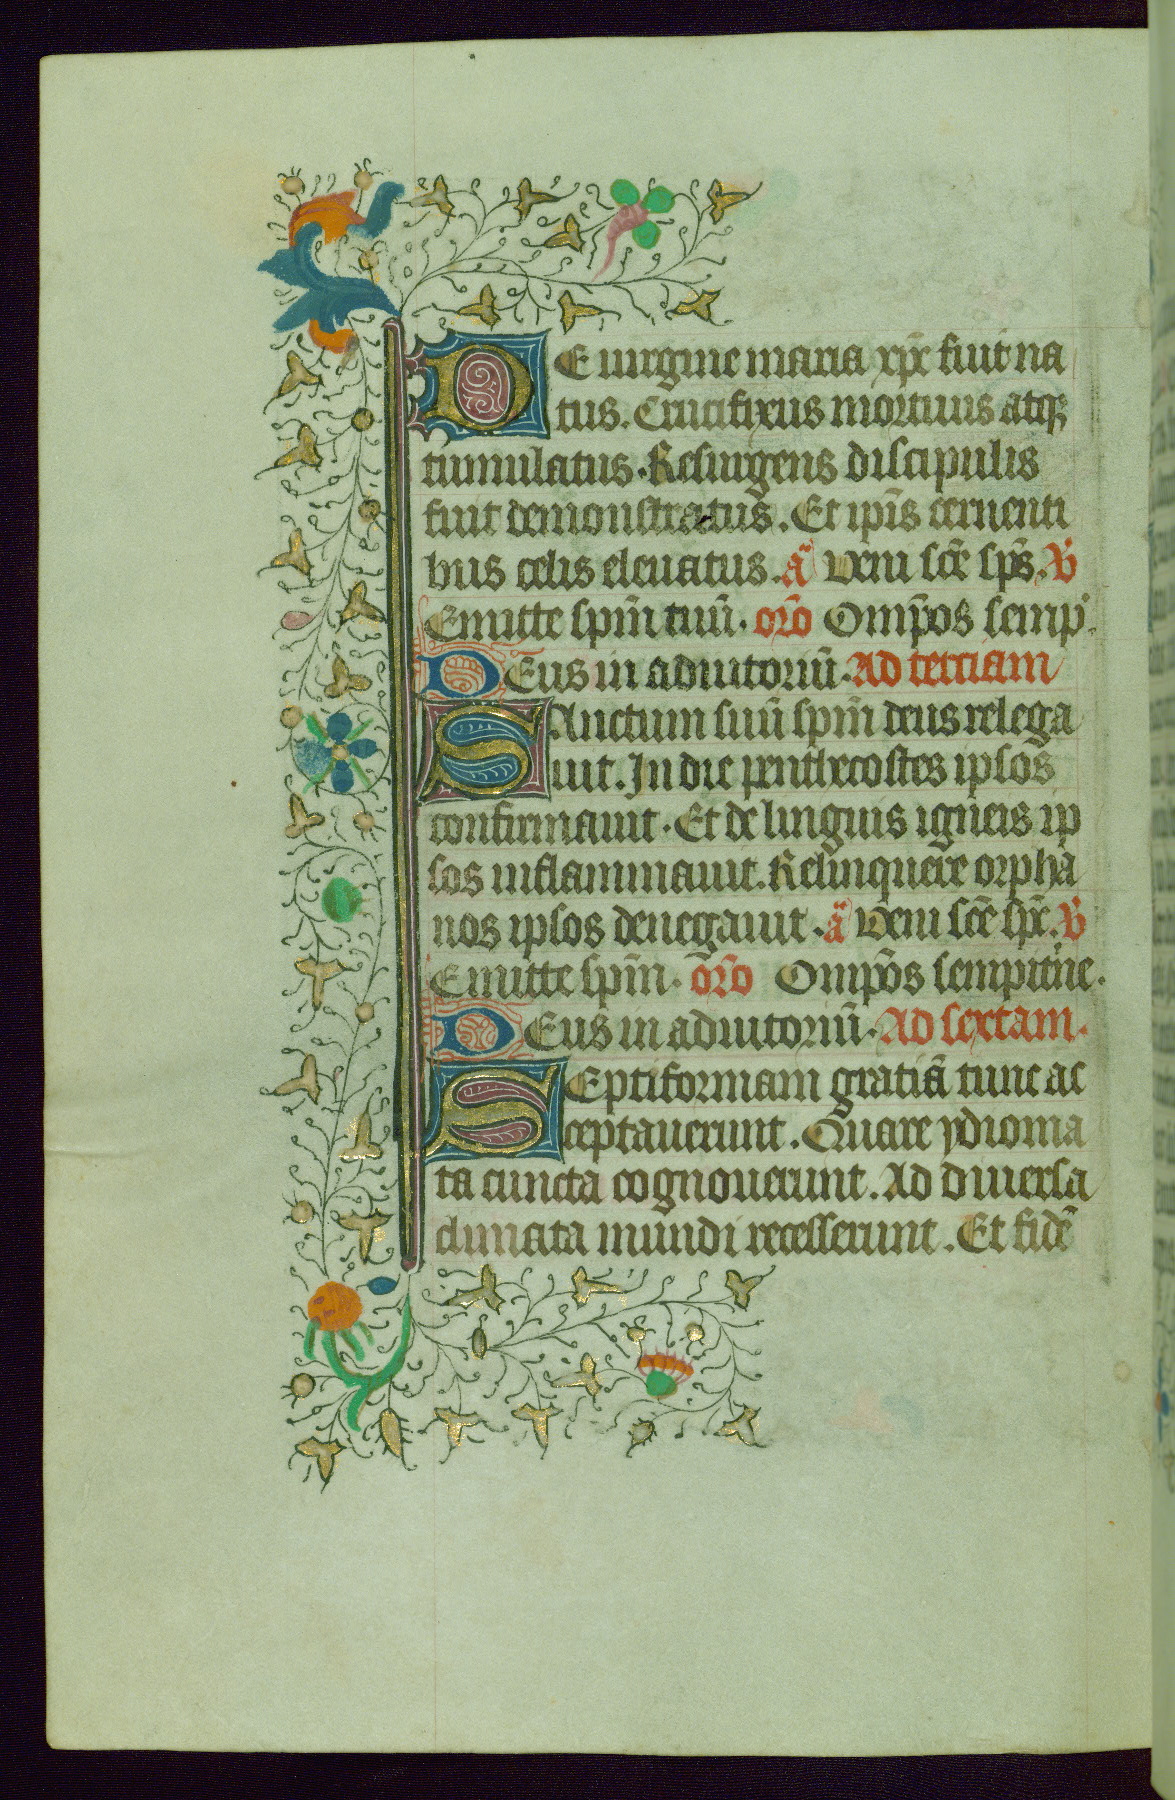 DE uirgine maria xp̄c fuit na
tus. Crucifixus mortuus atqȝ
tumulatus. Resurgens discipulis
fuit demonstratus. Et ip̄is cernenti
bus celis eleuatus. añ Veni sc̄e sp̄s. V̄
Emitte sp̄m tuū. or̄o Omp̄os semp.
DEus in adiutoriū. Ad terciam
SAnctum suū sp̄m deus relega
uit. In die penthecostes ipsos
confirmauit. Et de linguis igneis ip
sos inflammauit. Relinquere orpha
nos ipsos denegauit. añ Veni sc̄e sp̄c. V̄
Emitte sp̄m. or̄o Omp̄os sempit'ne.
DEus in adiutoriū. Ad sextam.
SEptiformam gratiā tunc ac
ceptauerunt. Quare ydioma
ta cuncta cognouerunt. Ad diuersa
climata mundi recesserunt. Et fidē